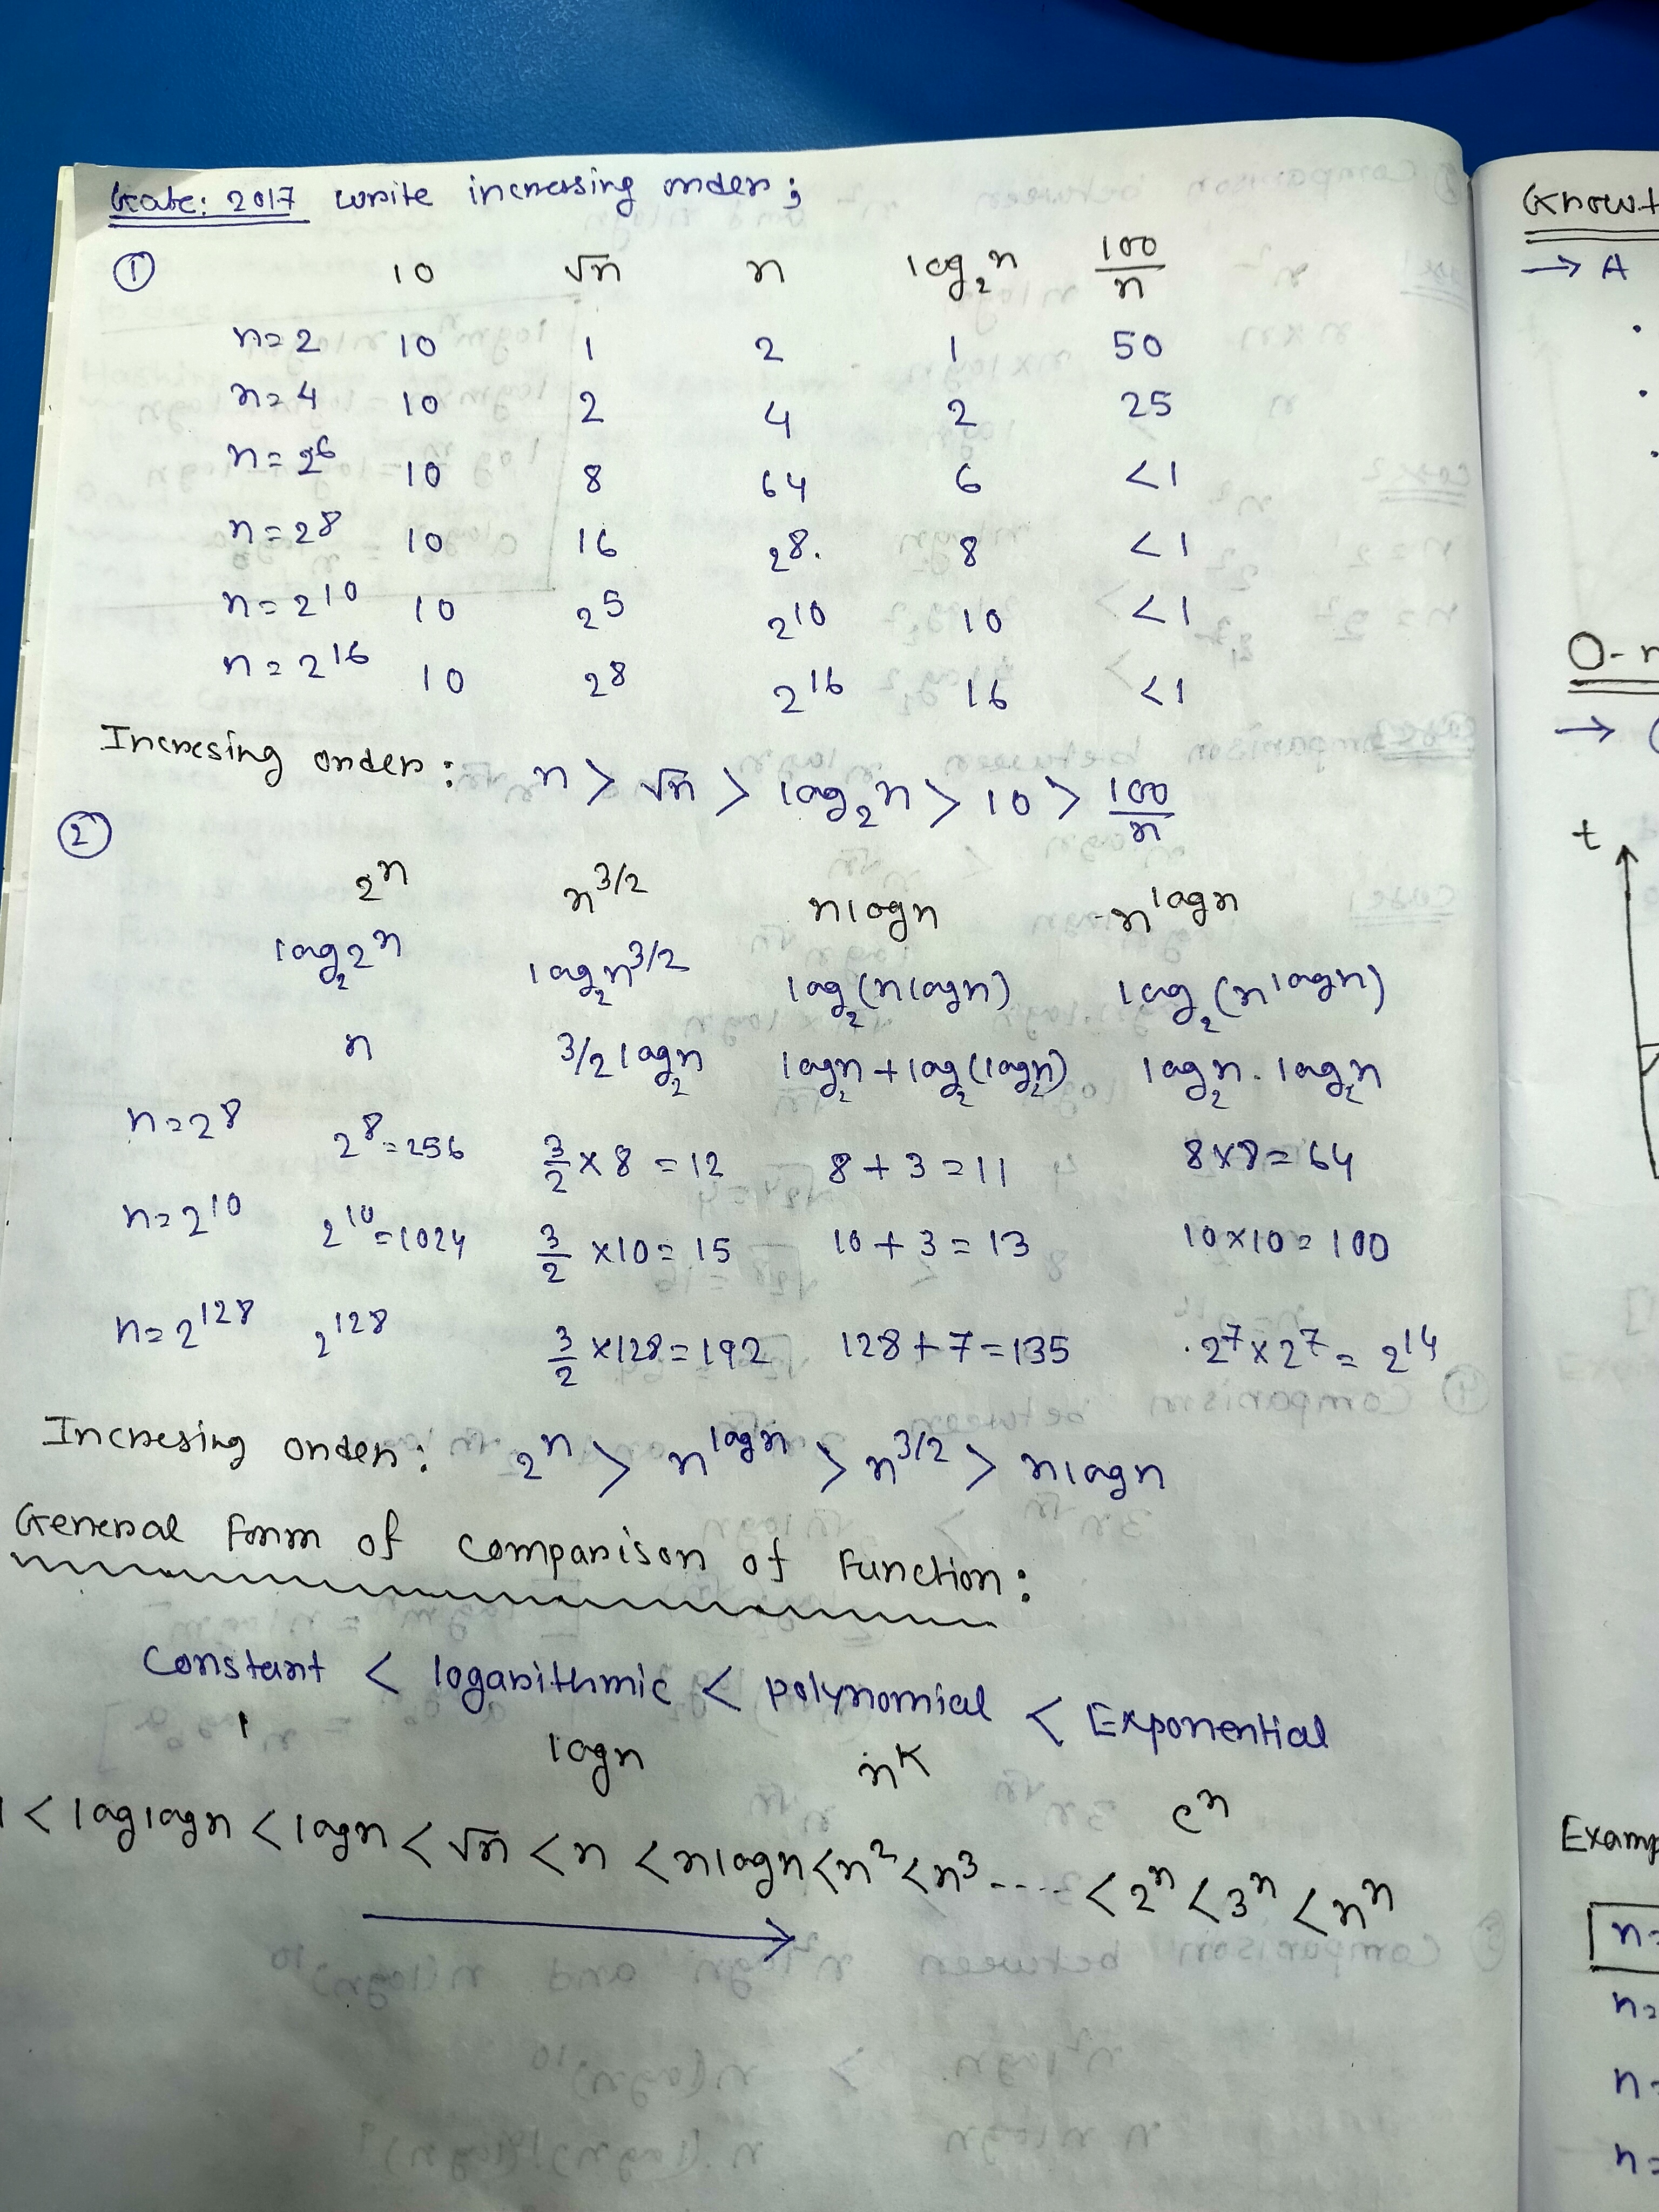 Gate: 2017 write increasing order;
① 10 √n n log₂n 100/n
n=2 10 1 2 1 50
n=4 10 2 4 2 25
n=2⁶ 10 8 64 6 <1
n=2⁸ 10 16 2⁸. 8 <1
n=2¹⁰ 10 2⁵ 2¹⁰ 10 <1
n=2¹⁶ 10 2⁸ 2¹⁶ 16 <1
Incresing order: n > √n > log₂n > 10 > 100/n
②
2ⁿ n^3/2 nlogn n^logn
log₂2ⁿ log₂n^3/2 log₂(nlogn) log₂(n^logn)
n 3/2 log₂n log₂n + log₂(log₂n) log₂n . log₂n
n=2⁸ 2⁸=256 3/2 × 8 = 12 8+3=11 8×8=64
n=2¹⁰ 2¹⁰=1024 3/2 ×10=15 10+3=13 10×10=100
n=2¹²⁸ 2¹²⁸ 3/2 ×128=192 128+7=135 .2⁷×2⁷=2¹⁴
Incresing order: 2ⁿ > n^logn > n^3/2 > nlogn
General Form of comparison of Function:
Constant < logarithmic < polynomial < Exponential
1 logn n^k eⁿ
< loglogn < logn < √n < n < nlogn < n² < n³ ---- < 2ⁿ < 3ⁿ < nⁿ
→ A
O-
→
t
n=
n=
n=
n=